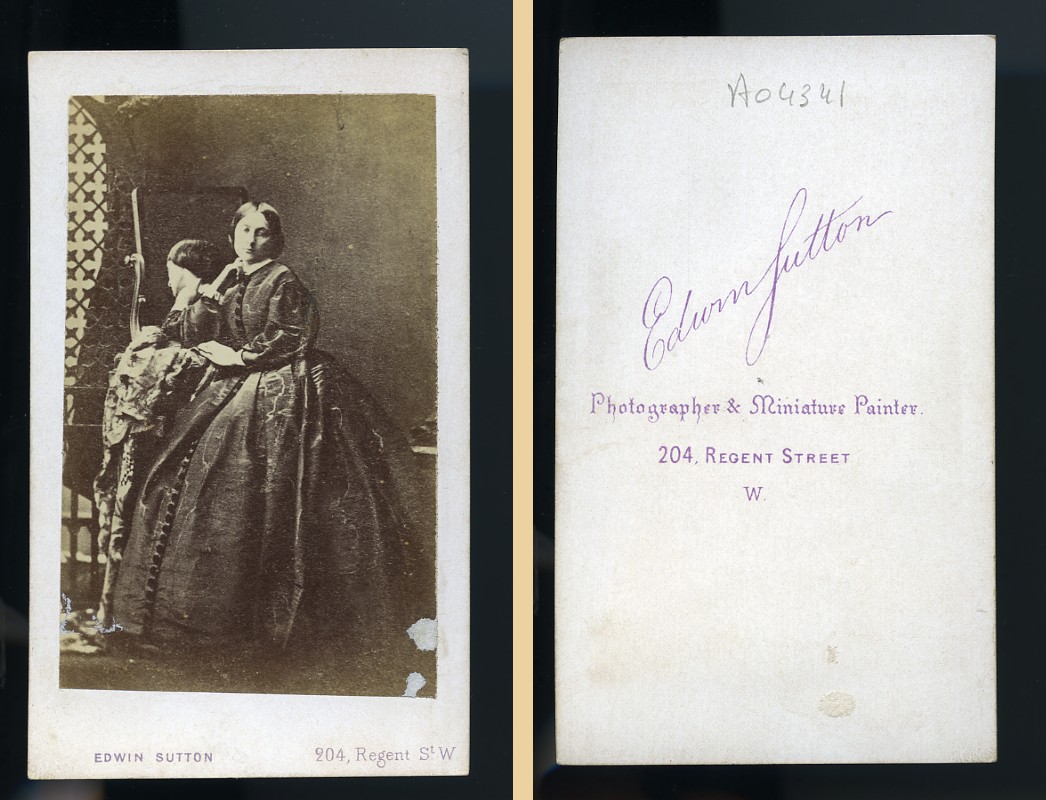 EDWIN SUTTON 204, Regent St W
A04341
Edwin Sutton
Photographer & Miniature Painter.
204, REGENT STREET
W.